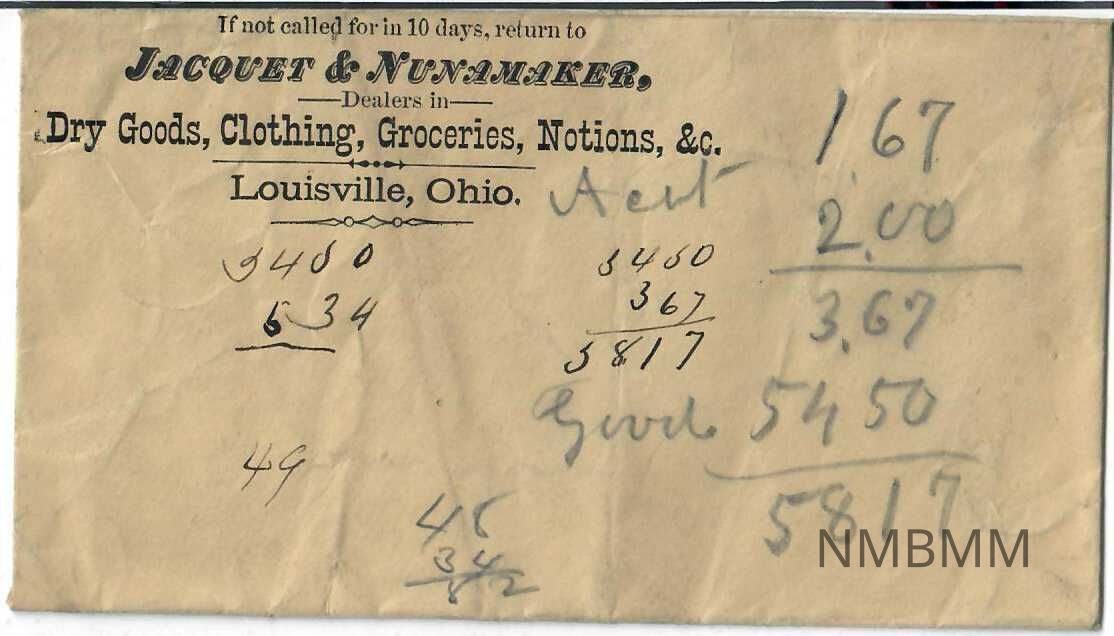 If not called for in 10 days, return to
JACQUET & NUNAMAKER,
Dealers in
Dry Goods, Clothing, Groceries, Notions, &c.
Louisville, Ohio.
1 67
Acct 2.00
3.67
Goods 54 50
58 17
5450
534
5450
367
5817
49
48
34
82
NMBMM